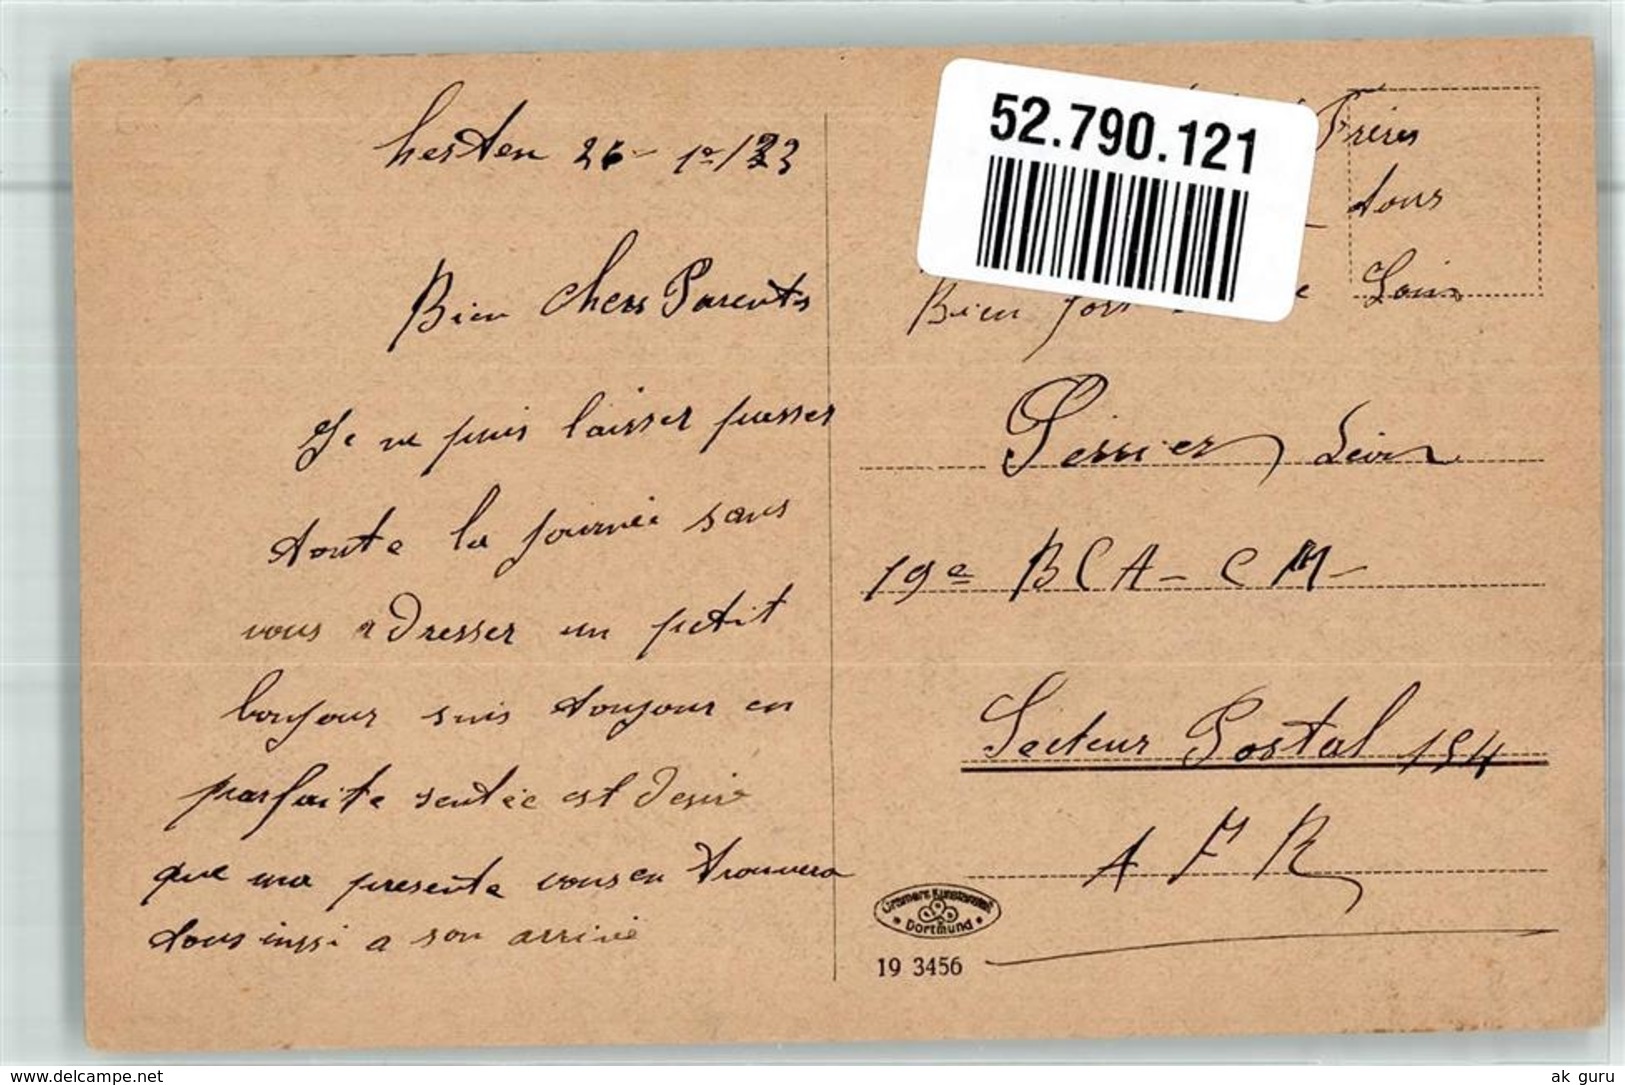 herten 26 - 1er/23
Bien Chers Parents
Je ne puis laisser passer
toute la journée sans
vous adresser un petit
bonjour suis toujour en
parfaite sentée est desire
que ma presente vous en trouvera
tous inssi a son arrivé
52.790.121
Frères
tous
Bien fort
Louis
Perrier Léon
19e BCA - C M -
Secteur Postal 154
A F R
Cramers Kunstanstalt
Dortmund
19 3456
www.delcampe.net
ak_guru